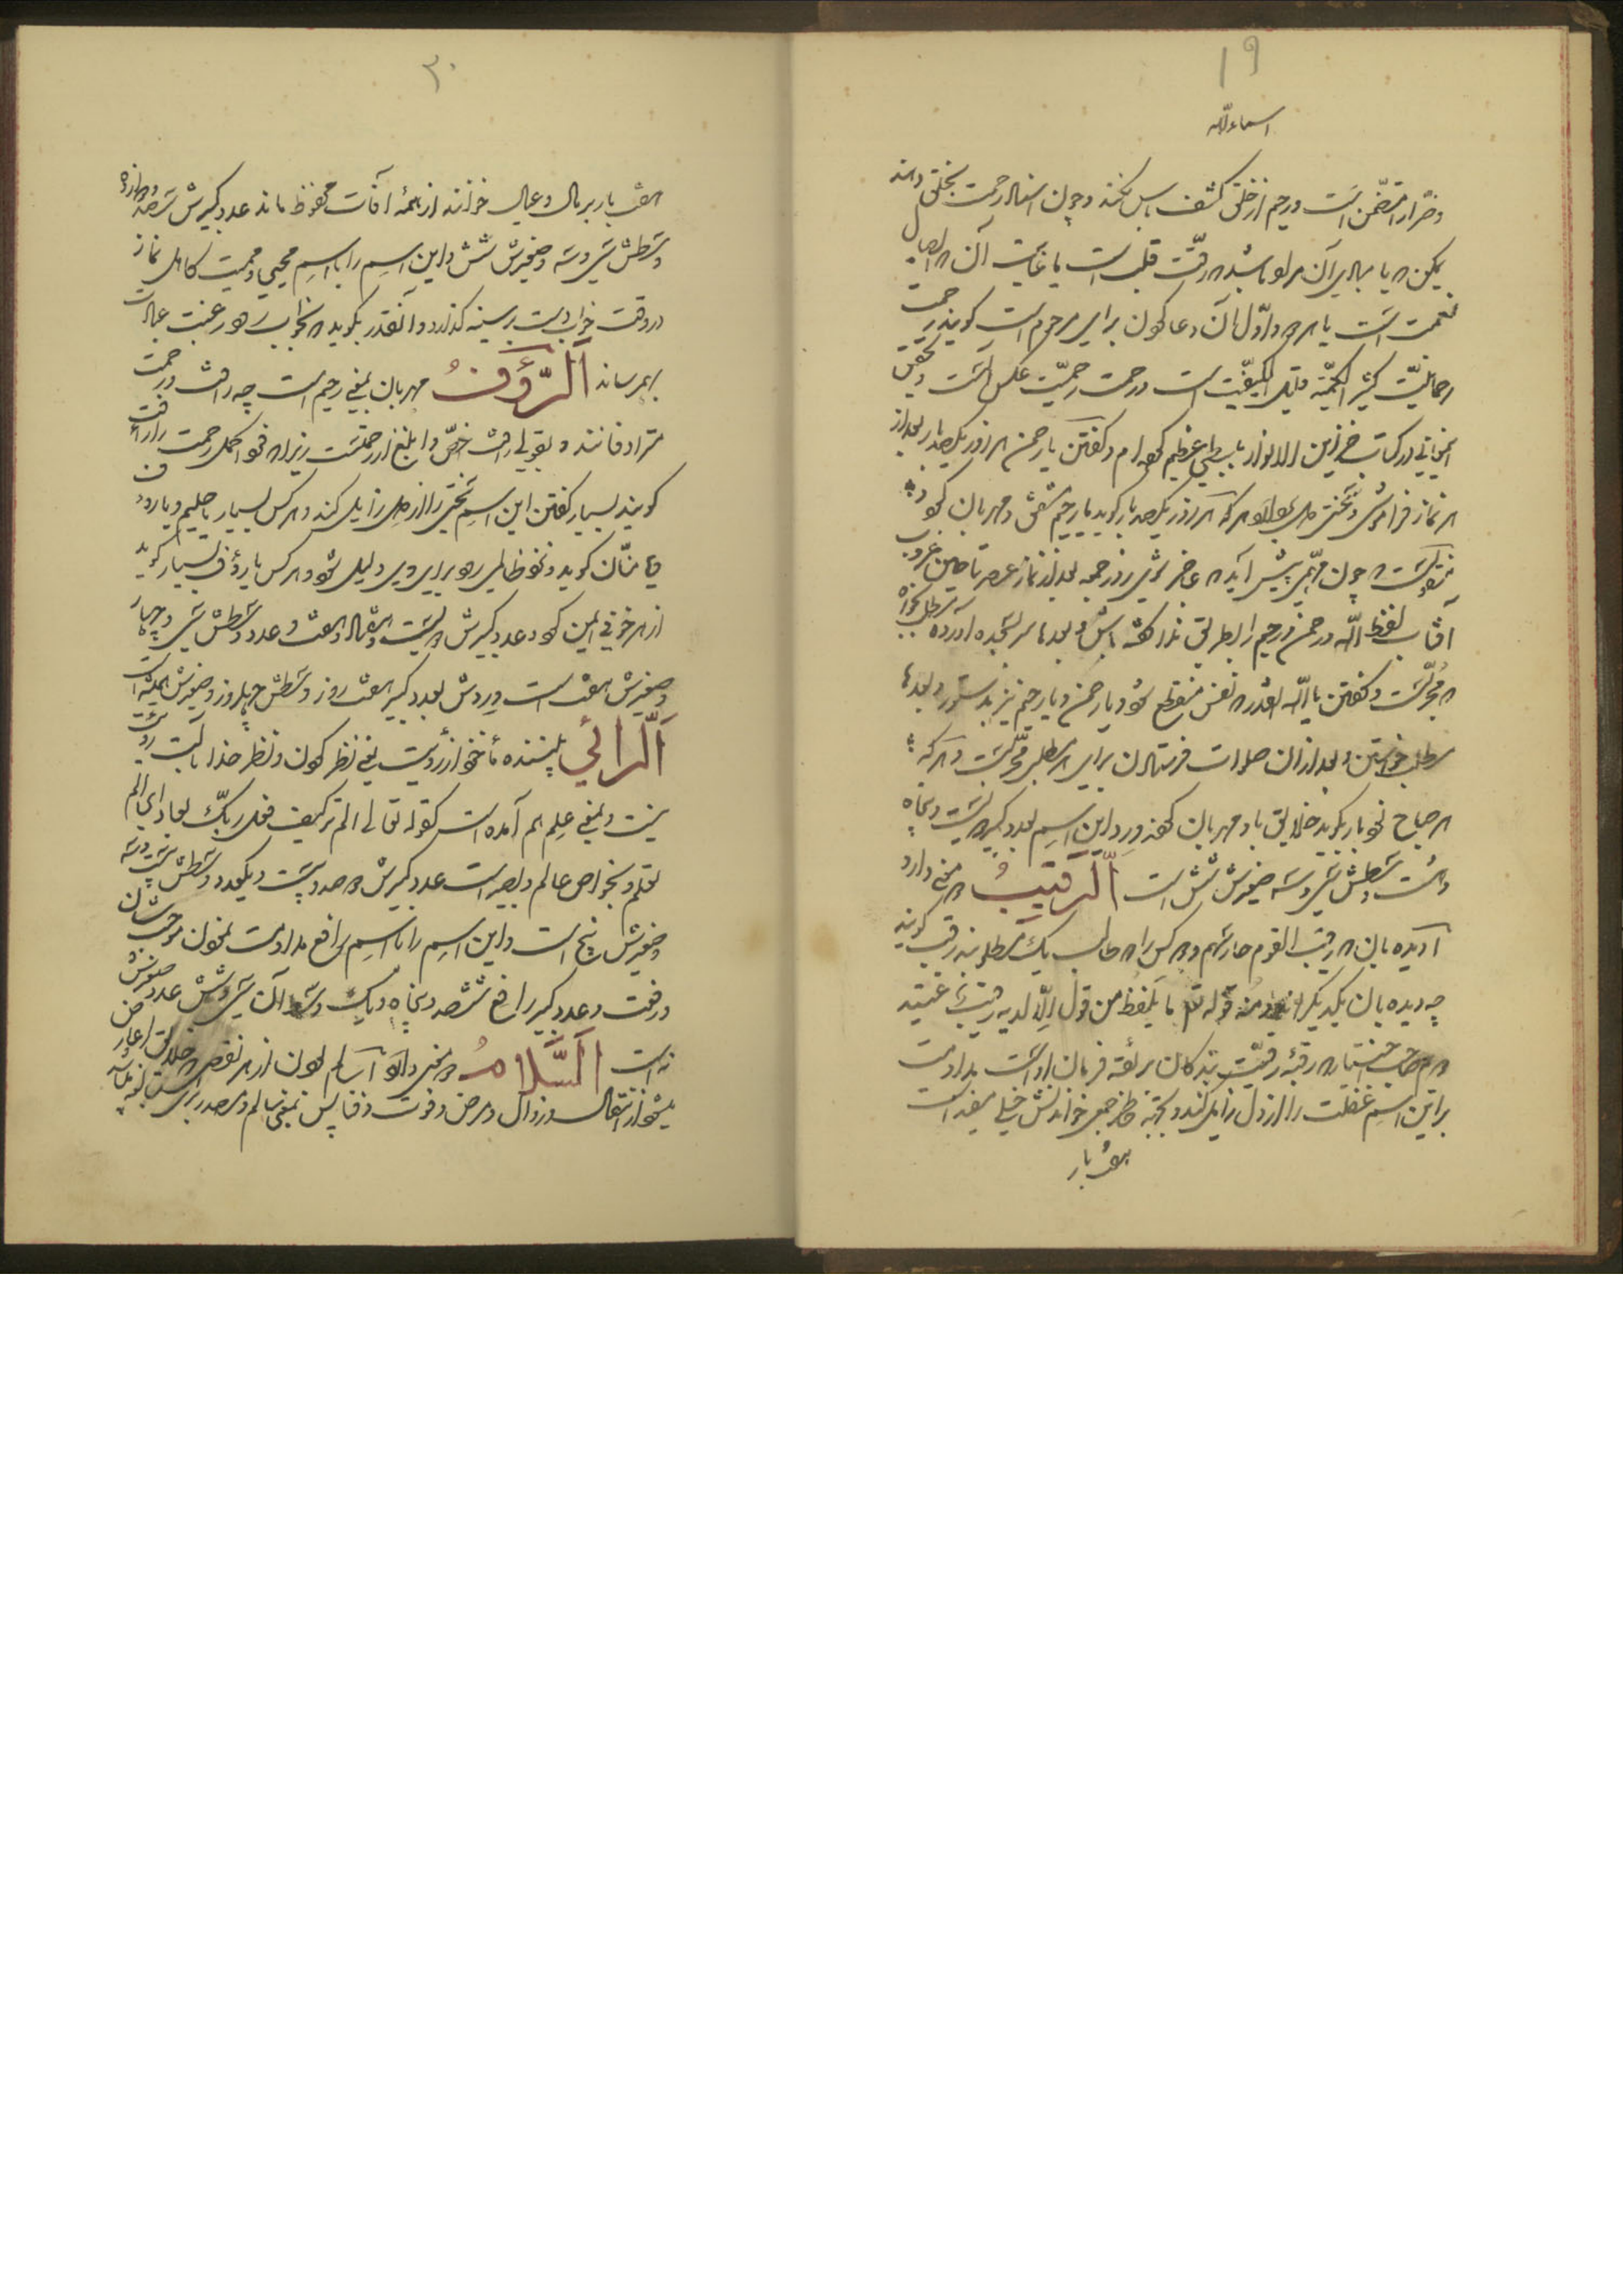 ۱۹
اسماء الله
و ضرار متضمن است و رحیم از خلق کشف باس کند و چون اسناد رحمت بخلق دهند
ممکن یا مبدء آن مراد باشد که رقت قلب است یا غایت آن که ایصال
نعمت است یا هر دو و اول آن دعا کردن برای مرحوم است گویند رحمت
رحمانیت کثیر الکمیة قلیل الکیفیت است و رحمت رحیمیت عکس آنست و تحقیق
در کتاب خزاین الانوار با بسطی عظیم کرده‌ام و گفتن یا رحمن هر روز یکصد بار بعد از
هر نماز فراموشی و سختی دل ببرد و هر که هر روز یکصد بار گوید یا رحیم مشفق و مهربان گردد
منقولست که چون مهمی پیش آید که عاجز شوی روز جمعه بعد از نماز عصر تا حین غروب
آفتاب لفظ الله و رحمن و رحیم را بطریق ندا گفته باش و بعدها سر بسجده آورده مطلب بخواه
که مجربست و گفتن یا الله آنقدر که نفس منقطع شود و یا رحمن و یا رحیم نیز بدستور و بعدها
مطلب خواستن و بعد از آن صلوات فرستادن برای هر مطلب مجربست و هر که
هر صباح نود بار بگوید خلایق با او مهربان گردند و ورد این اسم بعدد کبیر دویست و پنجاه
و هشت و وسطش سی و سه صغیرش شش است اَلرَّقیبُ دو معنی دارد
رقیب القوم حارسهم و دو کس را که طالب یک مطلوبند رقیب گویند
چه دیده‌بان یکدیگرند و منه قوله تعالی ما یلفظ من قول الا لدیه رقیب عتید
سیم صاحب اختیار که رقبه رقیت بندگان بربقه فرمان اوست مداومت
بر این اسم غفلت را از دل زایل کند و بجهة خاطر جمعی خواندنش خیلی مفید است
هفت بار
۲۰
هفت بار بر مال و عیال خوانند از همه آفات محفوظ ماند عدد کبیرش سیصد و دوازده
وسطش سی و سه و صغیرش شش و این اسم را با اسم محیی و ممیت کاهل نماز
در وقت خواب دست بر سینه گذارد و آنقدر بگوید که بخواب رود رغبت بعبادت
بهم رساند اَلرَّؤُفُ مهربان بمعنی رحیم است چه رأفت و رحمت
مترادفانند و بقولی رأفت اخص و ابلغ از رحمتست زیرا که فرد اکمل رحمت را رأفت
گویند بسیار گفتن این اسم سختی را از دل زایل کند و هر کس بسیار یا حلیم و یا رؤف
و یا منان گوید و نزد ظالمی رود برای وی ذلیل شود و هر کس یا رؤف بسیار گوید
از هر خوفی ایمن گردد عدد کبیرش دویست و هشتاد و هفت و عدد وسطش سی و چهار
و صغیرش هفت است وردش بعدد کبیر هفت روز و وسطش چهل روز و صغیرش همیشه است
اَلرّائی بیننده مأخوذ از رؤیت یعنی نظر کردن و نظر خدا بآلت رؤیت
نیست و بمعنی علم هم آمده است کقوله تعالی الم تر کیف فعل ربک بعاد ای الم
تعلم و بخواص عالم و بصیر است عدد کبیرش دو صد و بیست و یکعدد وسطش بیست و سه
صغیرش پنج است و این اسم را با اسم رافع مداومت نمودن موجب شان
و رفعت و عدد کبیر رافع سیصد و پنجاه و یک وسط آن سی و شش عدد صغرش
نه است اَلسَّلامُ دو معنی دارد اول سالم بودن از هر نقص که خلایق را عارض
میشود از انتقال و زوال و مرض و فوت و فنا پس بمعنی سالم و مصدر برای مبالغه باشد